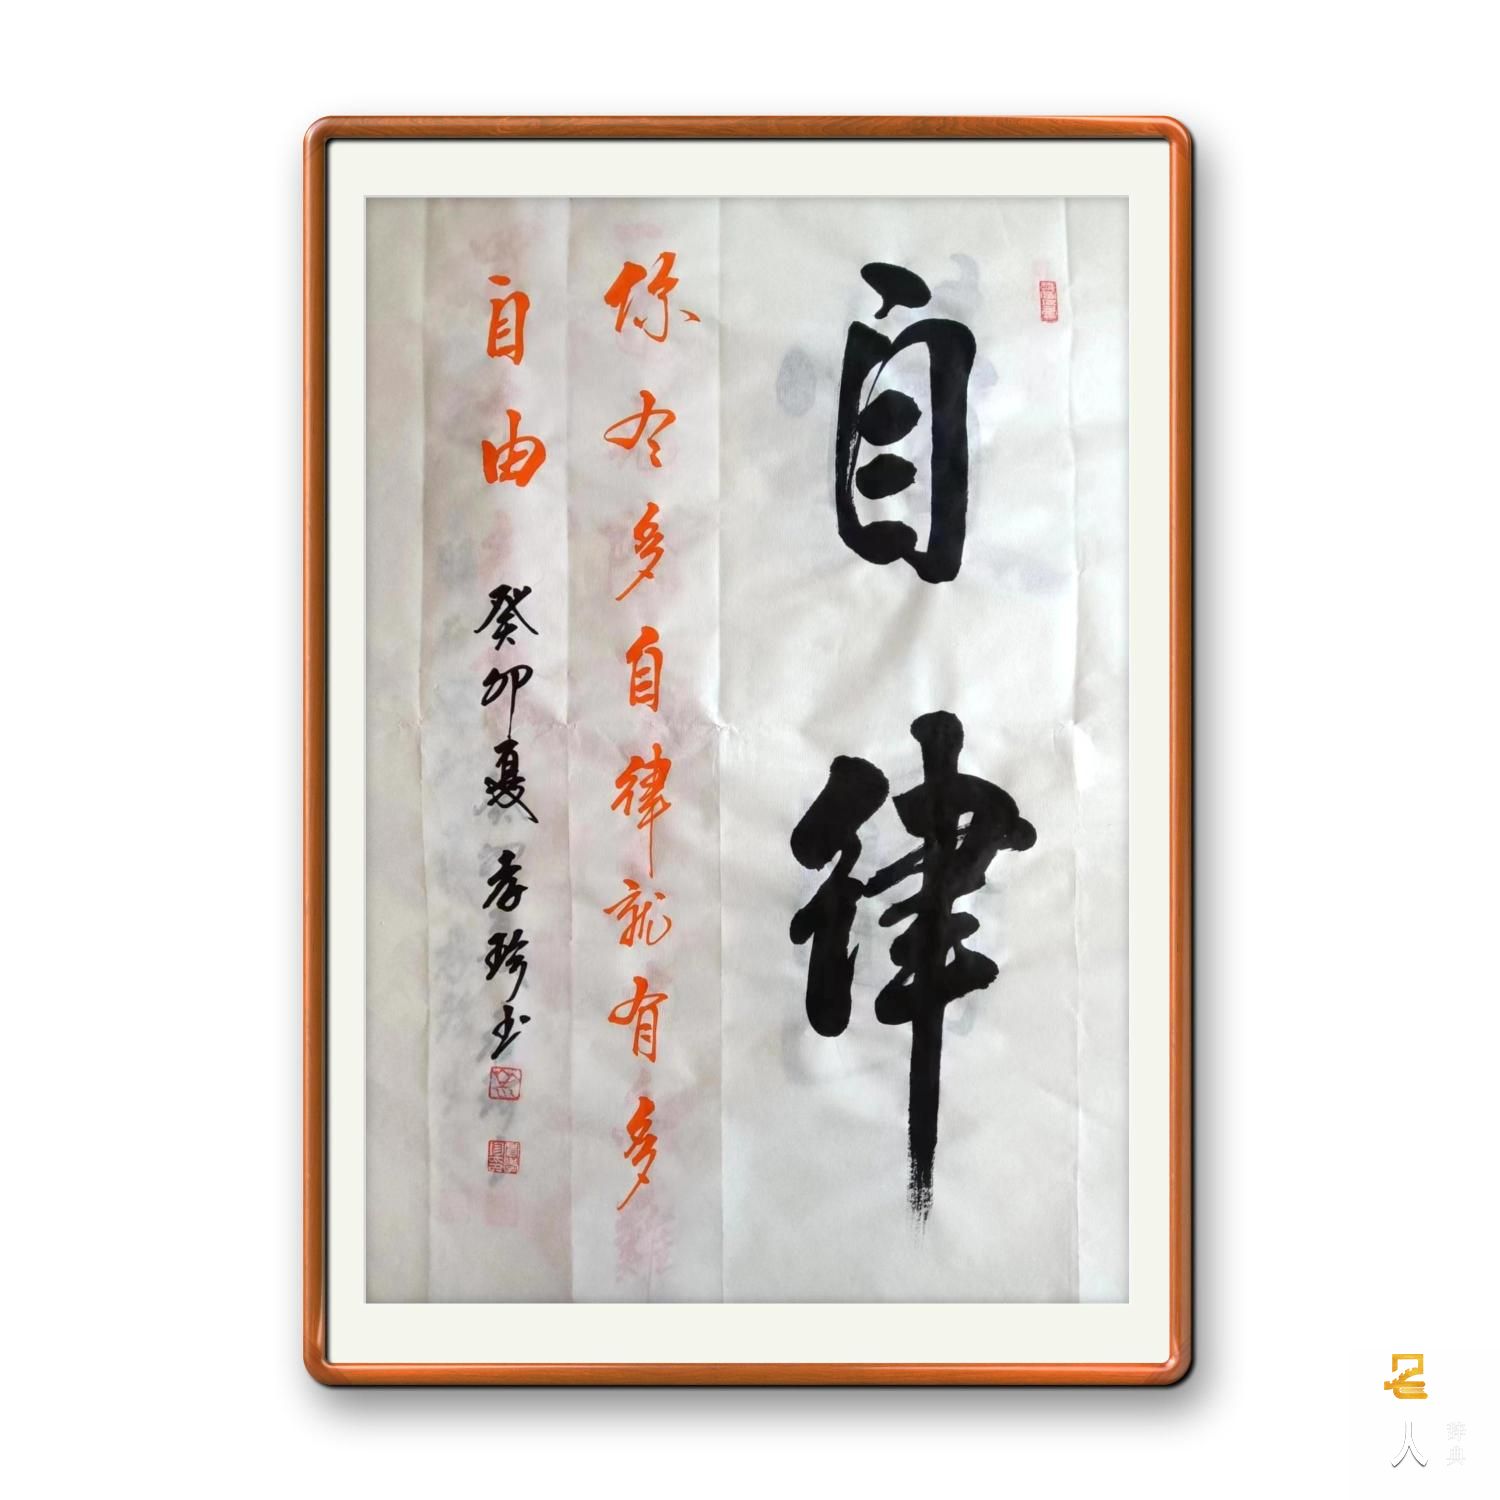 自律
你有多自律就有多
自由 癸卯夏 孝珍书
名人辞典